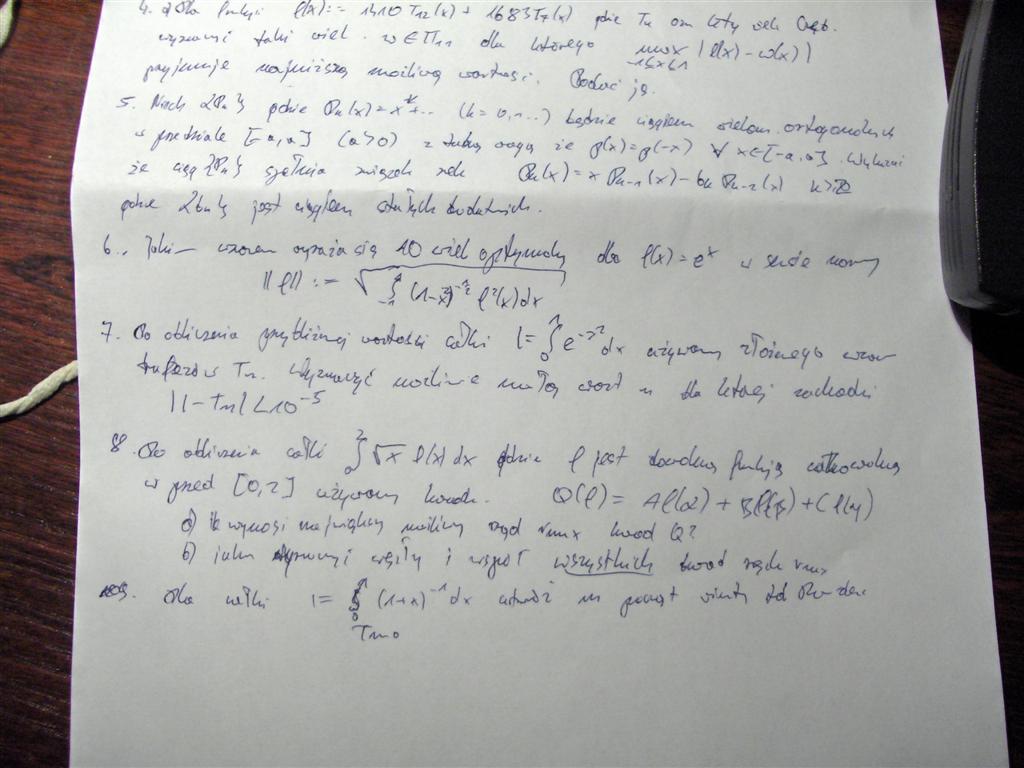 4. a) Dla funkcji f(x) := 1410 T₁₂(x) + 1683 T₇(x) gdzie Tₙ n-ty wiel. Czeb.
wyznaczyć taki wiel. w ∈ Π₁₁ dla którego max |f(x) - w(x)| -1≤x≤1
przyjmuje najniższą możliwą wartość. Podać ją.
5. Niech {Pₙ} gdzie Pₖ(x) = xᵏ+... (k = 0,1...) będzie ciągiem wielom. ortogonalnych
w przedziale [-a,a] (a>0) z taką wagą że p(x) = p(-x) ∀ x∈[-a,a]. Wykazać
że ciąg {Pₙ} spełnia związek rek Pₖ(x) = x Pₖ₋₁(x) - bₖ Pₖ₋₂(x) k≥2
gdzie {bₖ} jest ciągiem stałych dodatnich.
6. Jakim wzorem wyraża się 10 wiel optymalny dla f(x) = eˣ w sensie normy
||f|| := √∫₋₁¹ (1-x²)^-½ f²(x)dx
7. Do obliczenia przybliżonej wartości całki I = ∫₀¹ e^-x² dx używamy złożonego wzoru
trapezów Tₙ. Wyznaczyć możliwie małą wart n dla której zachodzi
|I - Tₙ| < 10⁻⁵
8. Do obliczenia całki ∫₀² √x f(x) dx gdzie f jest dowolną funkcją całkowalną
w przed [0,2] używamy kwadr. Q(f) = Af(α) + Bf(β) + Cf(γ)
a) ile wynosi największy możliwy rząd rmax kwad Q?
b) jakie węzły i wspoł wszystkich kwad rzędu rmax
Dla całki I = ∫₀¹ (1+x)⁻¹ dx utwórz